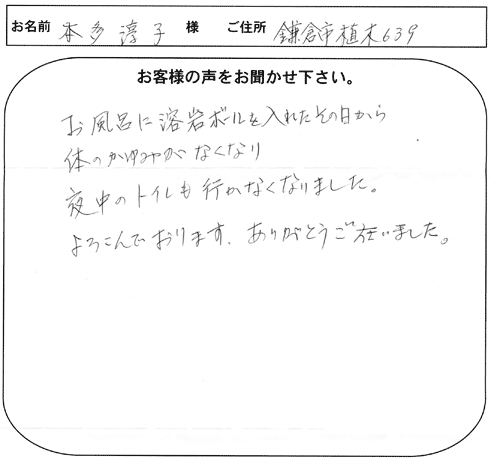 お名前 本多 淳子 様 ご住所 鎌倉市植木639
お客様の声をお聞かせ下さい。
お風呂に溶岩ボールを入れたその日から
体のかゆみがなくなり
夜中のトイレも行かなくなりました。
よろこんでおります、ありがとうご在いました。